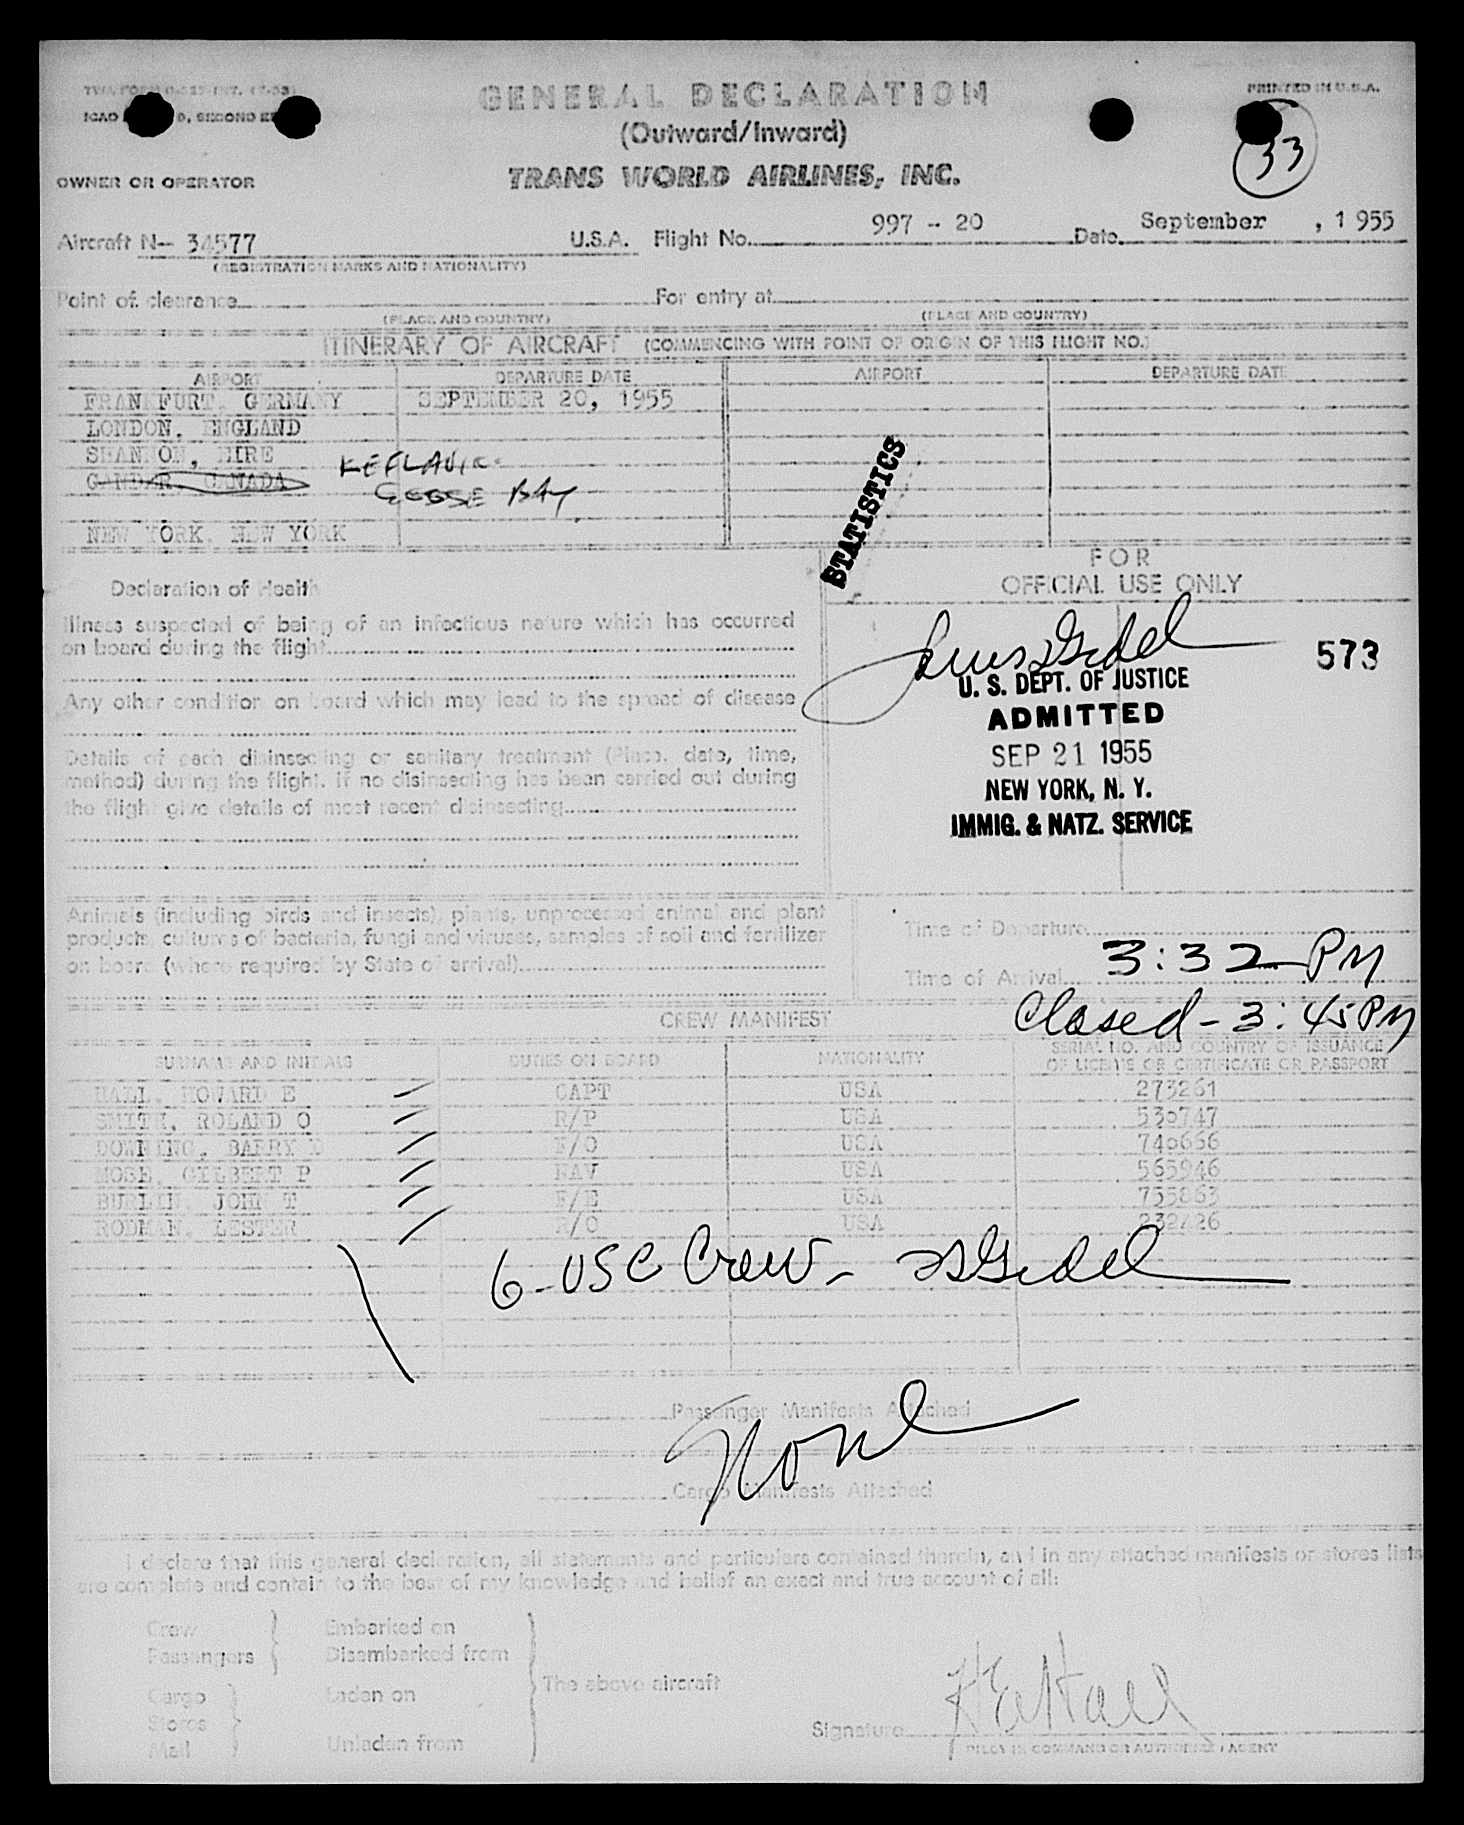 GENERAL DECLARATION
PRINTED IN U.S.A.
(Outward/Inward)
33
OWNER OR OPERATOR
TRANS WORLD AIRLINES, INC.
Aircraft N- 34577 U.S.A. Flight No. 997 - 20 Date September , 1955
(REGISTRATION MARKS AND NATIONALITY)
Point of clearance For entry at
(PLACE AND COUNTRY) (PLACE AND COUNTRY)
ITINERARY OF AIRCRAFT (COMMENCING WITH POINT OF ORIGIN OF THIS FLIGHT NO.)
AIRPORT DEPARTURE DATE AIRPORT DEPARTURE DATE
FRANKFURT, GERMANY SEPTEMBER 20, 1955
LONDON, ENGLAND
SHANNON, EIRE KEFLAVIK
GANDER, CANADA GOOSE BAY
NEW YORK, NEW YORK
STATISTICS
FOR
OFFICIAL USE ONLY
Declaration of Health
Illness suspected of being of an infectious nature which has occurred
on board during the flight
573
U. S. DEPT. OF JUSTICE
ADMITTED
SEP 21 1955
NEW YORK, N. Y.
IMMIG. & NATZ. SERVICE
Any other condition on board which may lead to the spread of disease
Details of each disinsecting or sanitary treatment (Place, date, time,
method) during the flight. If no disinsecting has been carried out during
the flight give details of most recent disinsecting
Animals (including birds and insects), plants, unprocessed animal and plant
products, cultures of bacteria, fungi and viruses, samples of soil and fertilizer
on board (where required by State of arrival)
Time of Departure
Time of Arrival 3:32 PM
Closed - 3:45 PM
CREW MANIFEST
SURNAME AND INITIALS DUTIES ON BOARD NATIONALITY SERIAL NO. AND COUNTRY OF ISSUANCE
OF LICENSE OR CERTIFICATE OR PASSPORT
HALL, HOWARD E CAPT USA 273261
SMITH, ROLAND O R/P USA 530747
DOWNING, BARRY D F/O USA 740666
MOSE, GILBERT P NAV USA 565946
BURLIN, JOHN T F/E USA 755863
RODMAN, LESTER R/O USA 232426
6-USC Crew -
Passenger Manifests Attached
None
Cargo Manifests Attached
I declare that this general declaration, all statements and particulars contained therein, and in any attached manifests or stores lists
are complete and contain to the best of my knowledge and belief an exact and true account of all:
Crew Embarked on
Passengers Disembarked from
The above aircraft
Cargo Laden on
Stores
Mail Unladen from
Signature HE Hall
PILOT IN COMMAND OR AUTHORIZED AGENT